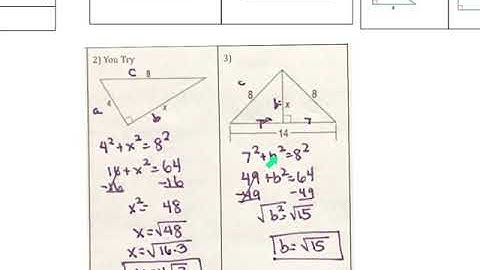 2) You Try
C 8
a 4
x
b
4² + x² = 8²
16 + x² = 64
-16 -16
x² = 48
x = √48
x = √16·3
3)
c
8 8
b x
7 7
14
7² + b² = 8²
49 + b² = 64
-49 -49
√b² = √15
b = √15